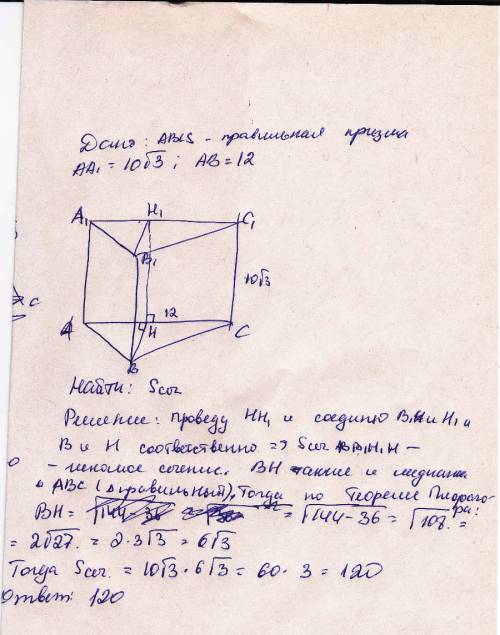 Дано: ABCS - правильная призма
AA₁ = 10√3 ; AB = 12
A₁ H₁ C₁
B₁
10√3
12
A H C
B
c
Найти: Sсеч
Решение: проведу HH₁ и соединю B₁ и H₁ и
B и H соответственно => Sсеч BB₁H₁H –
- искомое сечение. BH также и медиана
в ABC (Δ правильный). Тогда по теореме Пифагора:
BH = √144-36 = √144-36 = √108 =
= 2√27 = 2·3√3 = 6√3
Тогда Sсеч. = 10√3 · 6√3 = 60 · 3 = 120
Ответ: 120